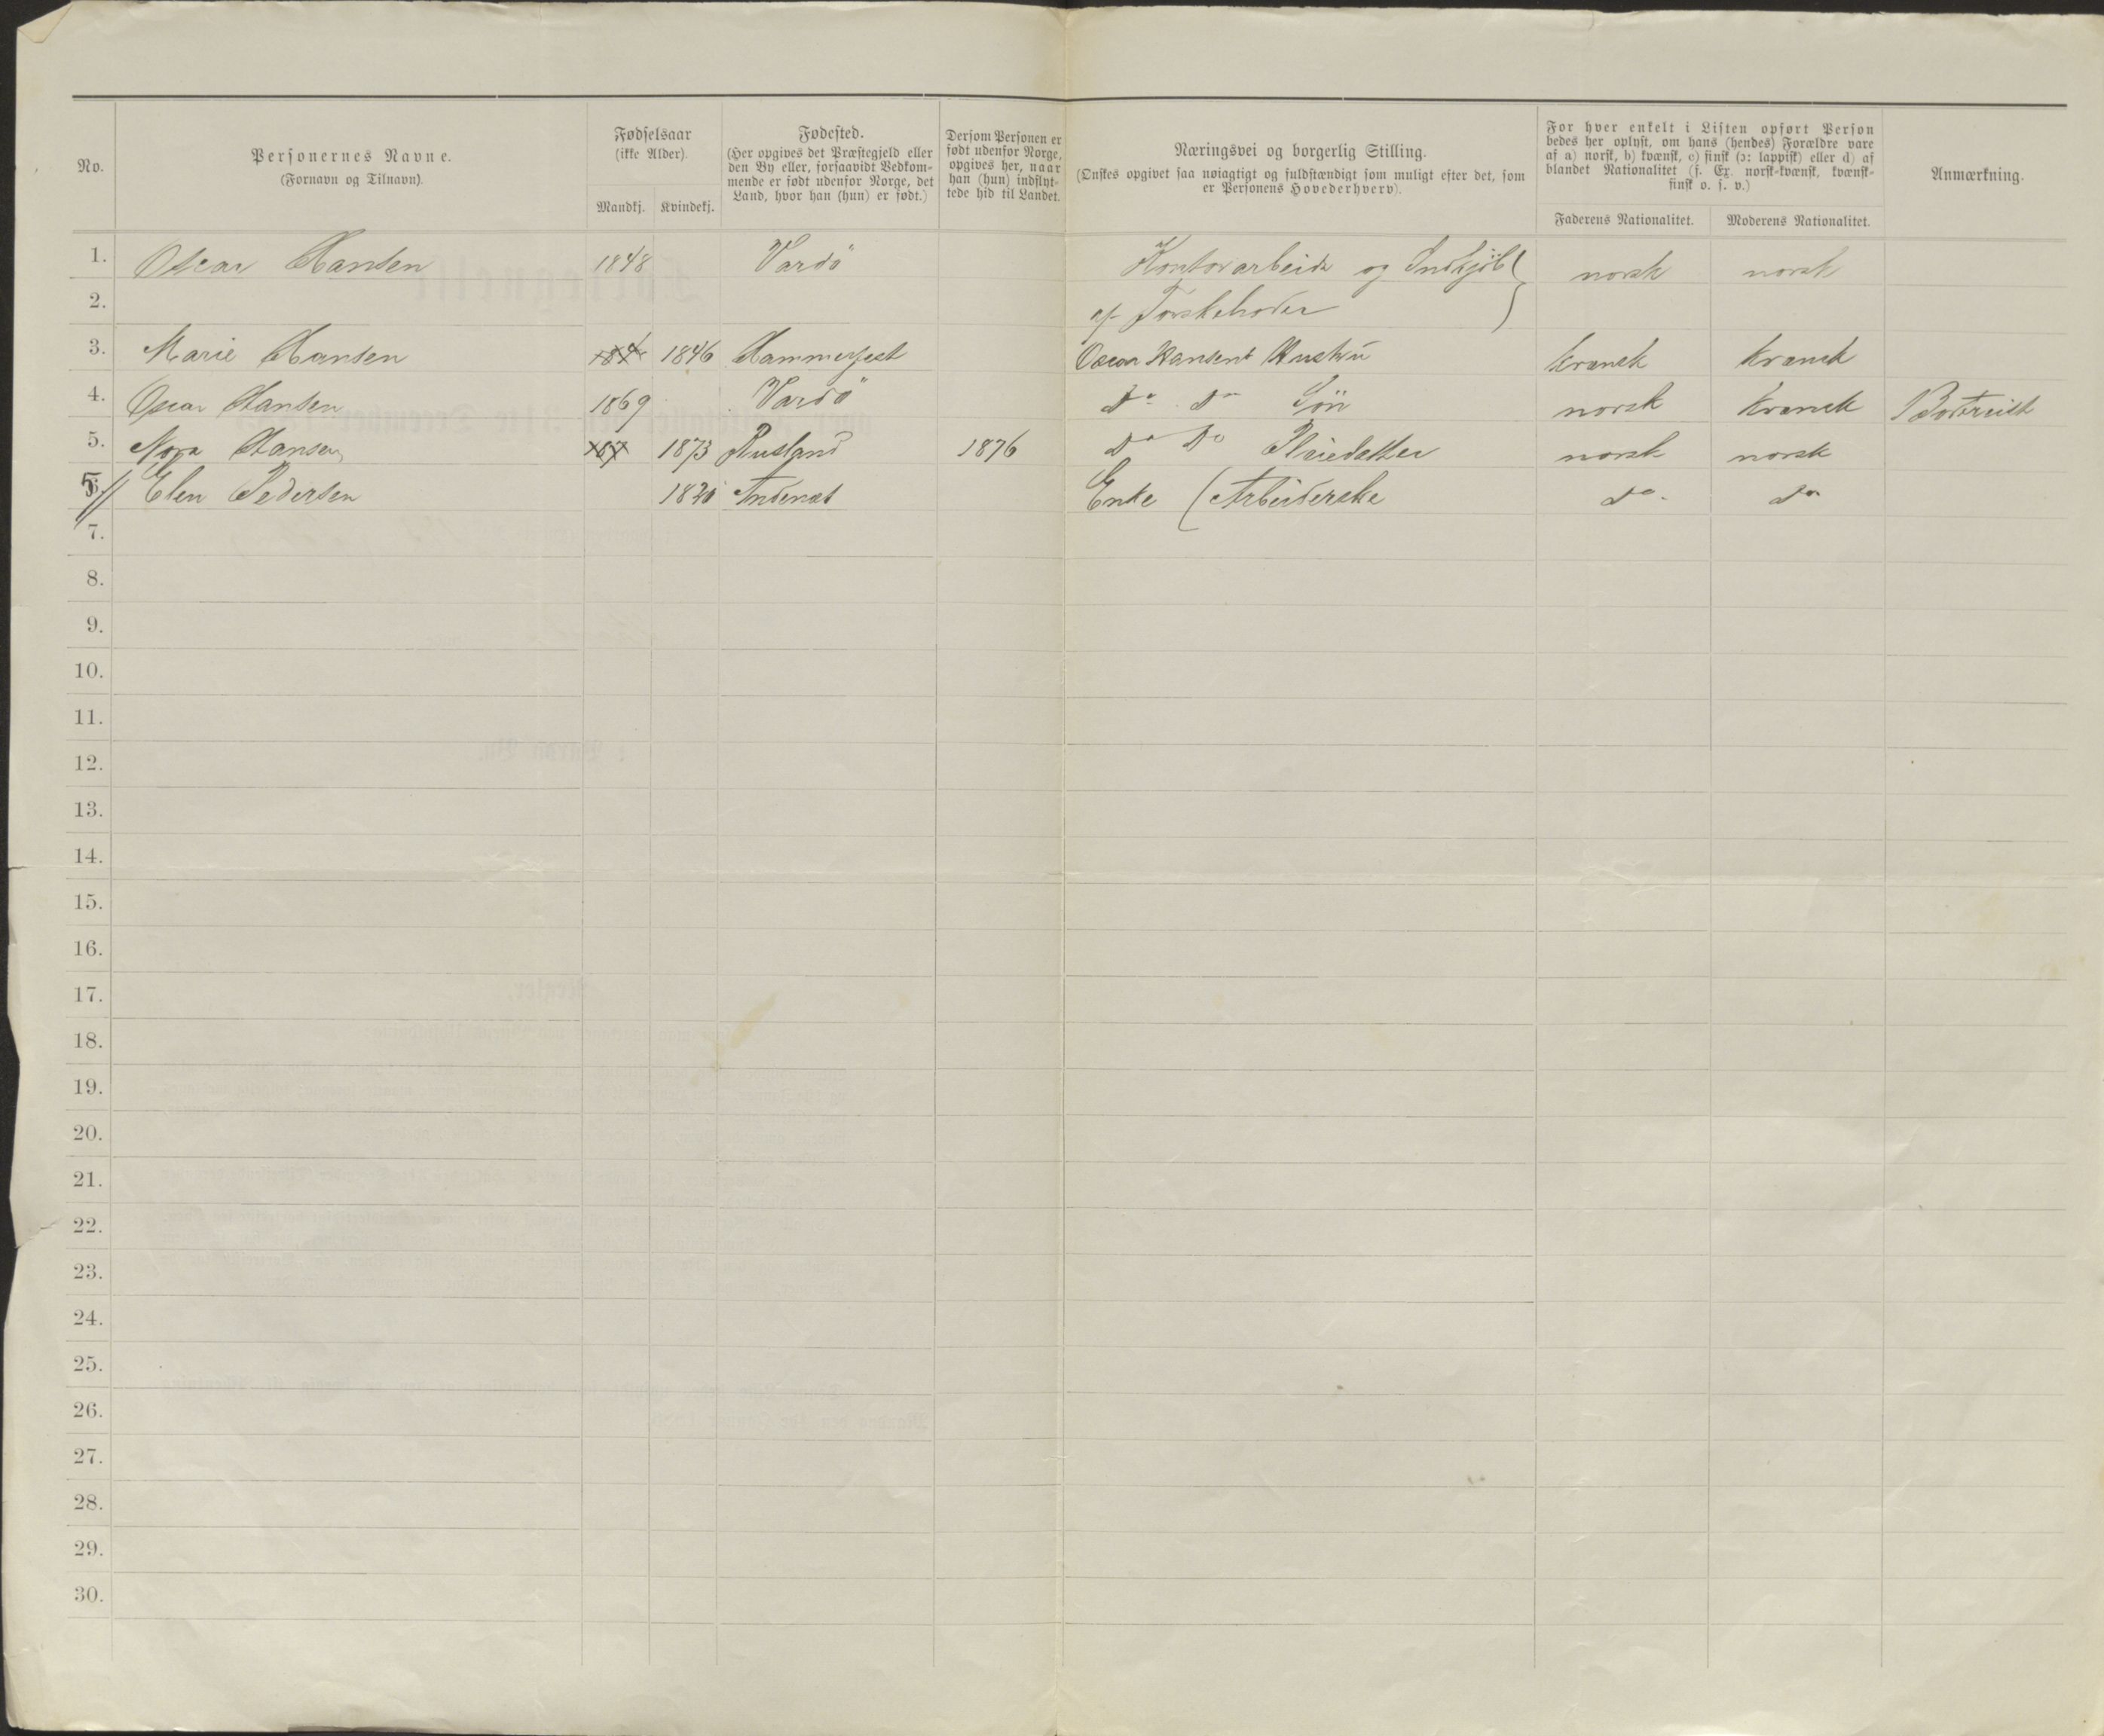 No.
Personernes Navne.
(Fornavn og Tilnavn).
Fødselsaar
(ikke Alder).
Mandkj. Kvindekj.
Fødested.
(Her opgives det Præstegjeld eller
den By eller, forsaavidt Vedkom-
mende er født udenfor Norge, det
Land, hvor han (hun) er født.)
Dersom Personen er
født udenfor Norge,
opgives her, naar
han (hun) indflyt-
tede hid til Landet.
Næringsvei og borgerlig Stilling.
(Ønskes opgivet saa nøiagtigt og fuldstændigt som muligt efter det, som
er Personens Hovederhverv).
For hver enkelt i Listen opført Person
bedes her oplyst, om hans (hendes) Forældre vare
af a) norsk, b) kvænsk, c) finsk (ɔ: lappisk) eller d) af
blandet Nationalitet (f. Ex. norsk-kvænsk, kvænsk-
finsk o. s. v.)
Faderens Nationalitet. Moderens Nationalitet.
Anmærkning.
1. Oscar Hansen 1848 Vardö Kontorarbeide og Indkjöb norsk norsk
2. af Torskehoder
3. Marie Hansen 184 1846 Hammerfest Oscar Hansens Hustru kvænsk kvænsk
4. Oscar Hansen 1869 Vardö Do Do Sön norsk kvænsk
5. Nora Hansen 187 1873 Rusland 1876 Do Do Pleiedatter norsk norsk
5 Elen Pedersen Enke (Arbeiderske do do
7.
8.
9.
10.
11.
12.
13.
14.
15.
16.
17.
18.
19.
20.
21.
22.
23.
24.
25.
26.
27.
28.
29.
30.